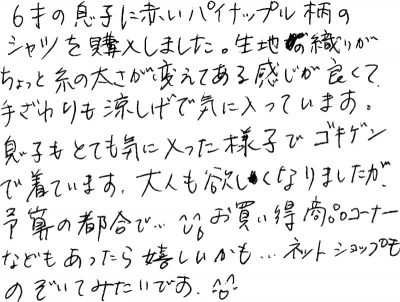 6才の息子に赤いパイナップル柄の
シャツを購入しました。生地の織りが
ちょっと糸の太さが変えてある感じが良くて
手ざわりも涼しげで気に入っています。
息子もとても気に入った様子でゴキゲン
で着ています。大人も欲しくなりましたが、
予算の都合で… お買い得商品コーナー
などもあったら嬉しいかも… ネットショップも
のぞいてみたいです。